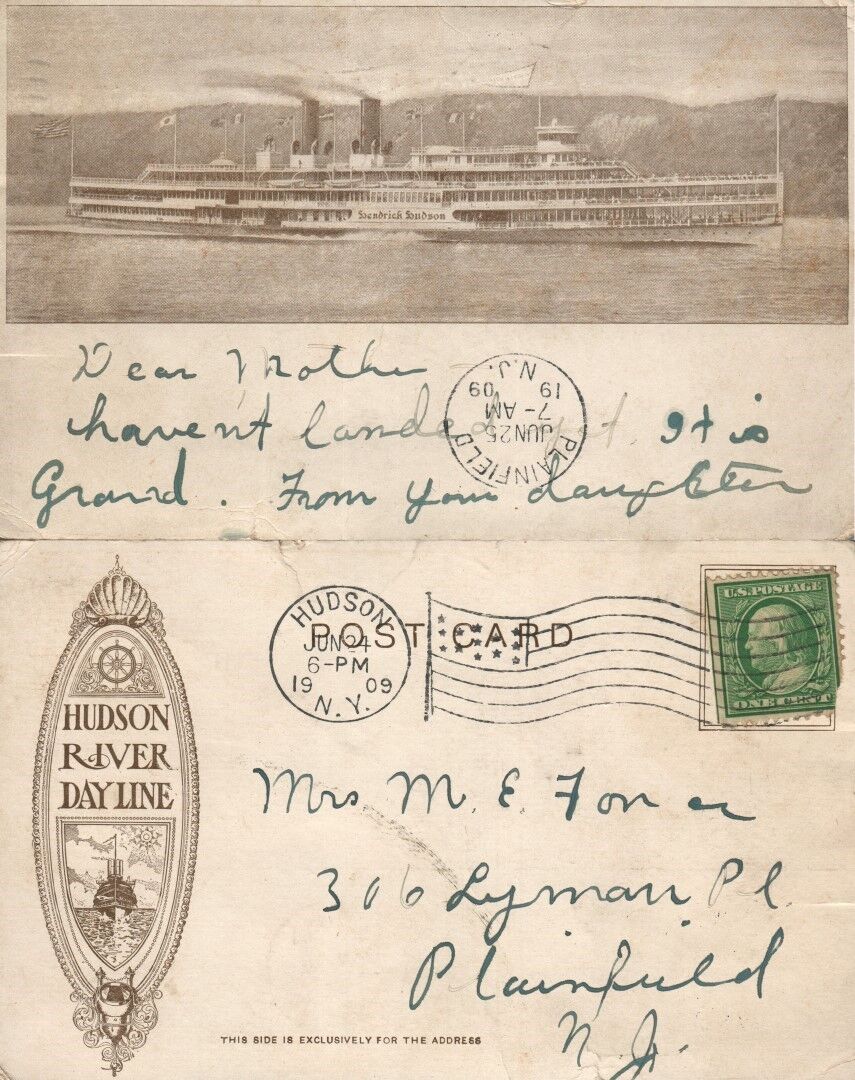 Hendrick Hudson
Dear Mother
havent landed yet. It is
Grand. From your daughter
PLAINFIELD
JUN 25
7-AM
19 09
N.J.
HUDSON
RIVER
DAY LINE
POST CARD
HUDSON
JUN 24
6-PM
19 09
N.Y.
U.S. POSTAGE
ONE CENT
Mrs M. E.
306 Lyman Pl.
Plainfield
N.J.
THIS SIDE IS EXCLUSIVELY FOR THE ADDRESS